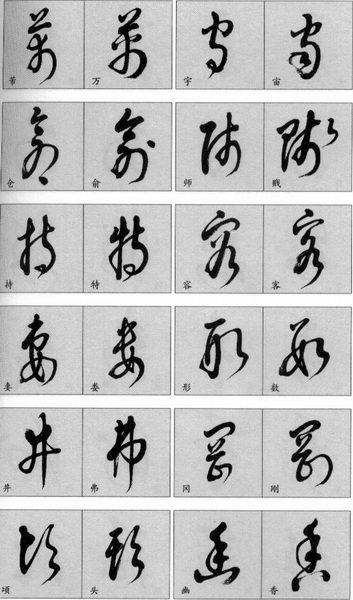 万 宇 宙
仓 俞 师 贱
持 特 容 客
妻 娄 形 数
井 弗 冈 刚
項 头 幽 香